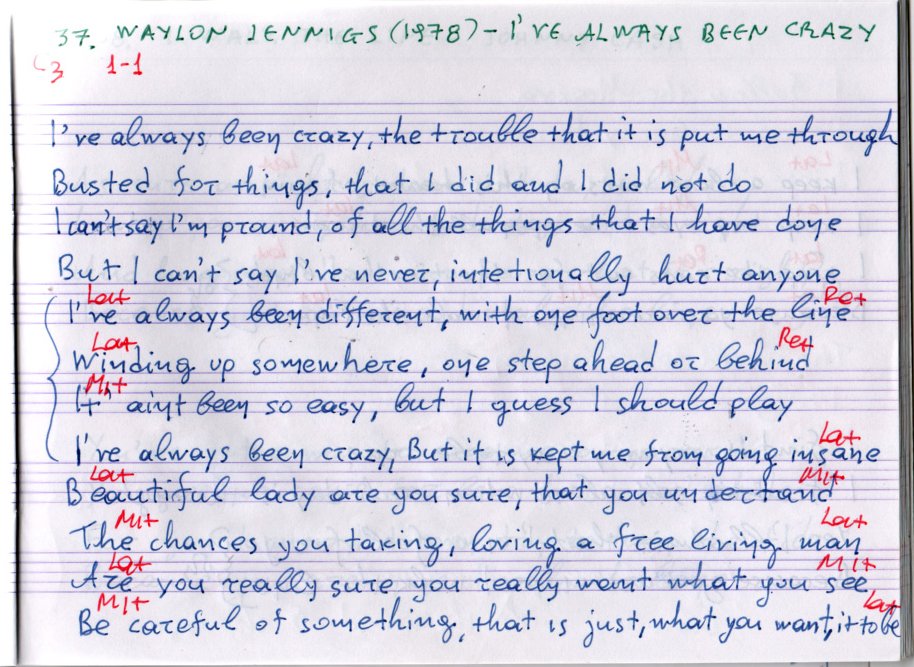 37. WAYLON JENNIGS (1978) - I'VE ALWAYS BEEN CRAZY
↳3 1-1
I've always been crazy, the trouble that it is put me through
Busted for things, that I did and I did not do
I can't say I'm pround, of all the things that I have done
But I can't say I've never, intetionally hurt anyone
La+ Re+
I've always been different, with one foot over the line
La+ Re+
Winding up somewhere, one step ahead or behind
Mi+
It ain't been so easy, but I guess I should play
La+
I've always been crazy, But it is kept me from going insane
La+ Mi+
Beautiful lady are you sure, that you understand
Mi+ La+
The chances you taking, loving a free living man
La+ Mi+
Are you really sure, you really want what you see
Mi+ La+
Be careful of something, that is just, what you want, it to be